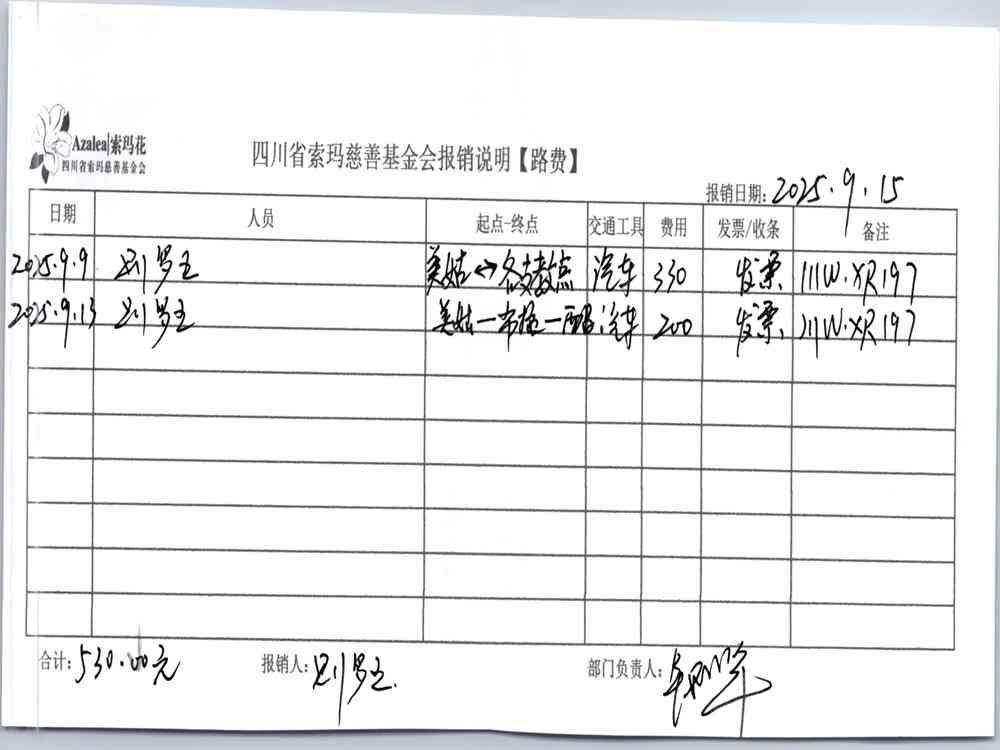 Azalea|索玛花
四川省索玛慈善基金会
四川省索玛慈善基金会报销说明【路费】
报销日期: 2025.9.15
日期 人员 起点-终点 交通工具 费用 发票/收条 备注
2025.9.9 罗主 美姑↔各支教点 汽车 330 发票 川W·XR197
2025.9.13 罗主 美姑— 汽车 200 发票 川W·XR197
合计: 530.00元 报销人: 罗主. 部门负责人: